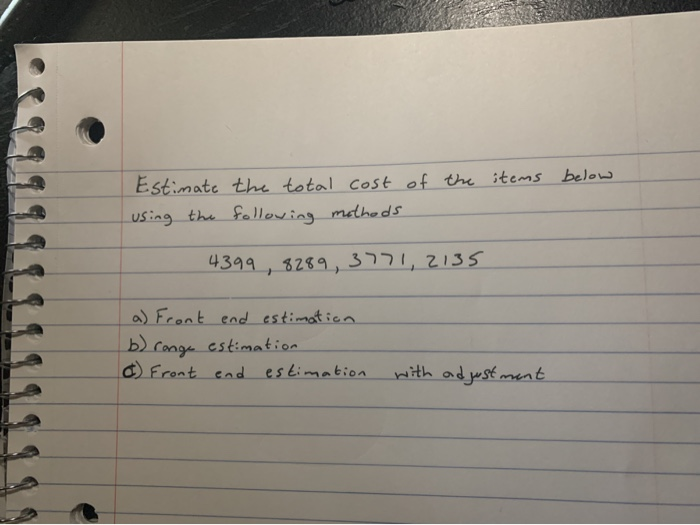 Estimate the total cost of the items below
using the following methods
4399, 8289, 3771, 2135
a) Front end estimation
b) range estimation
c) Front end estimation with adjustment